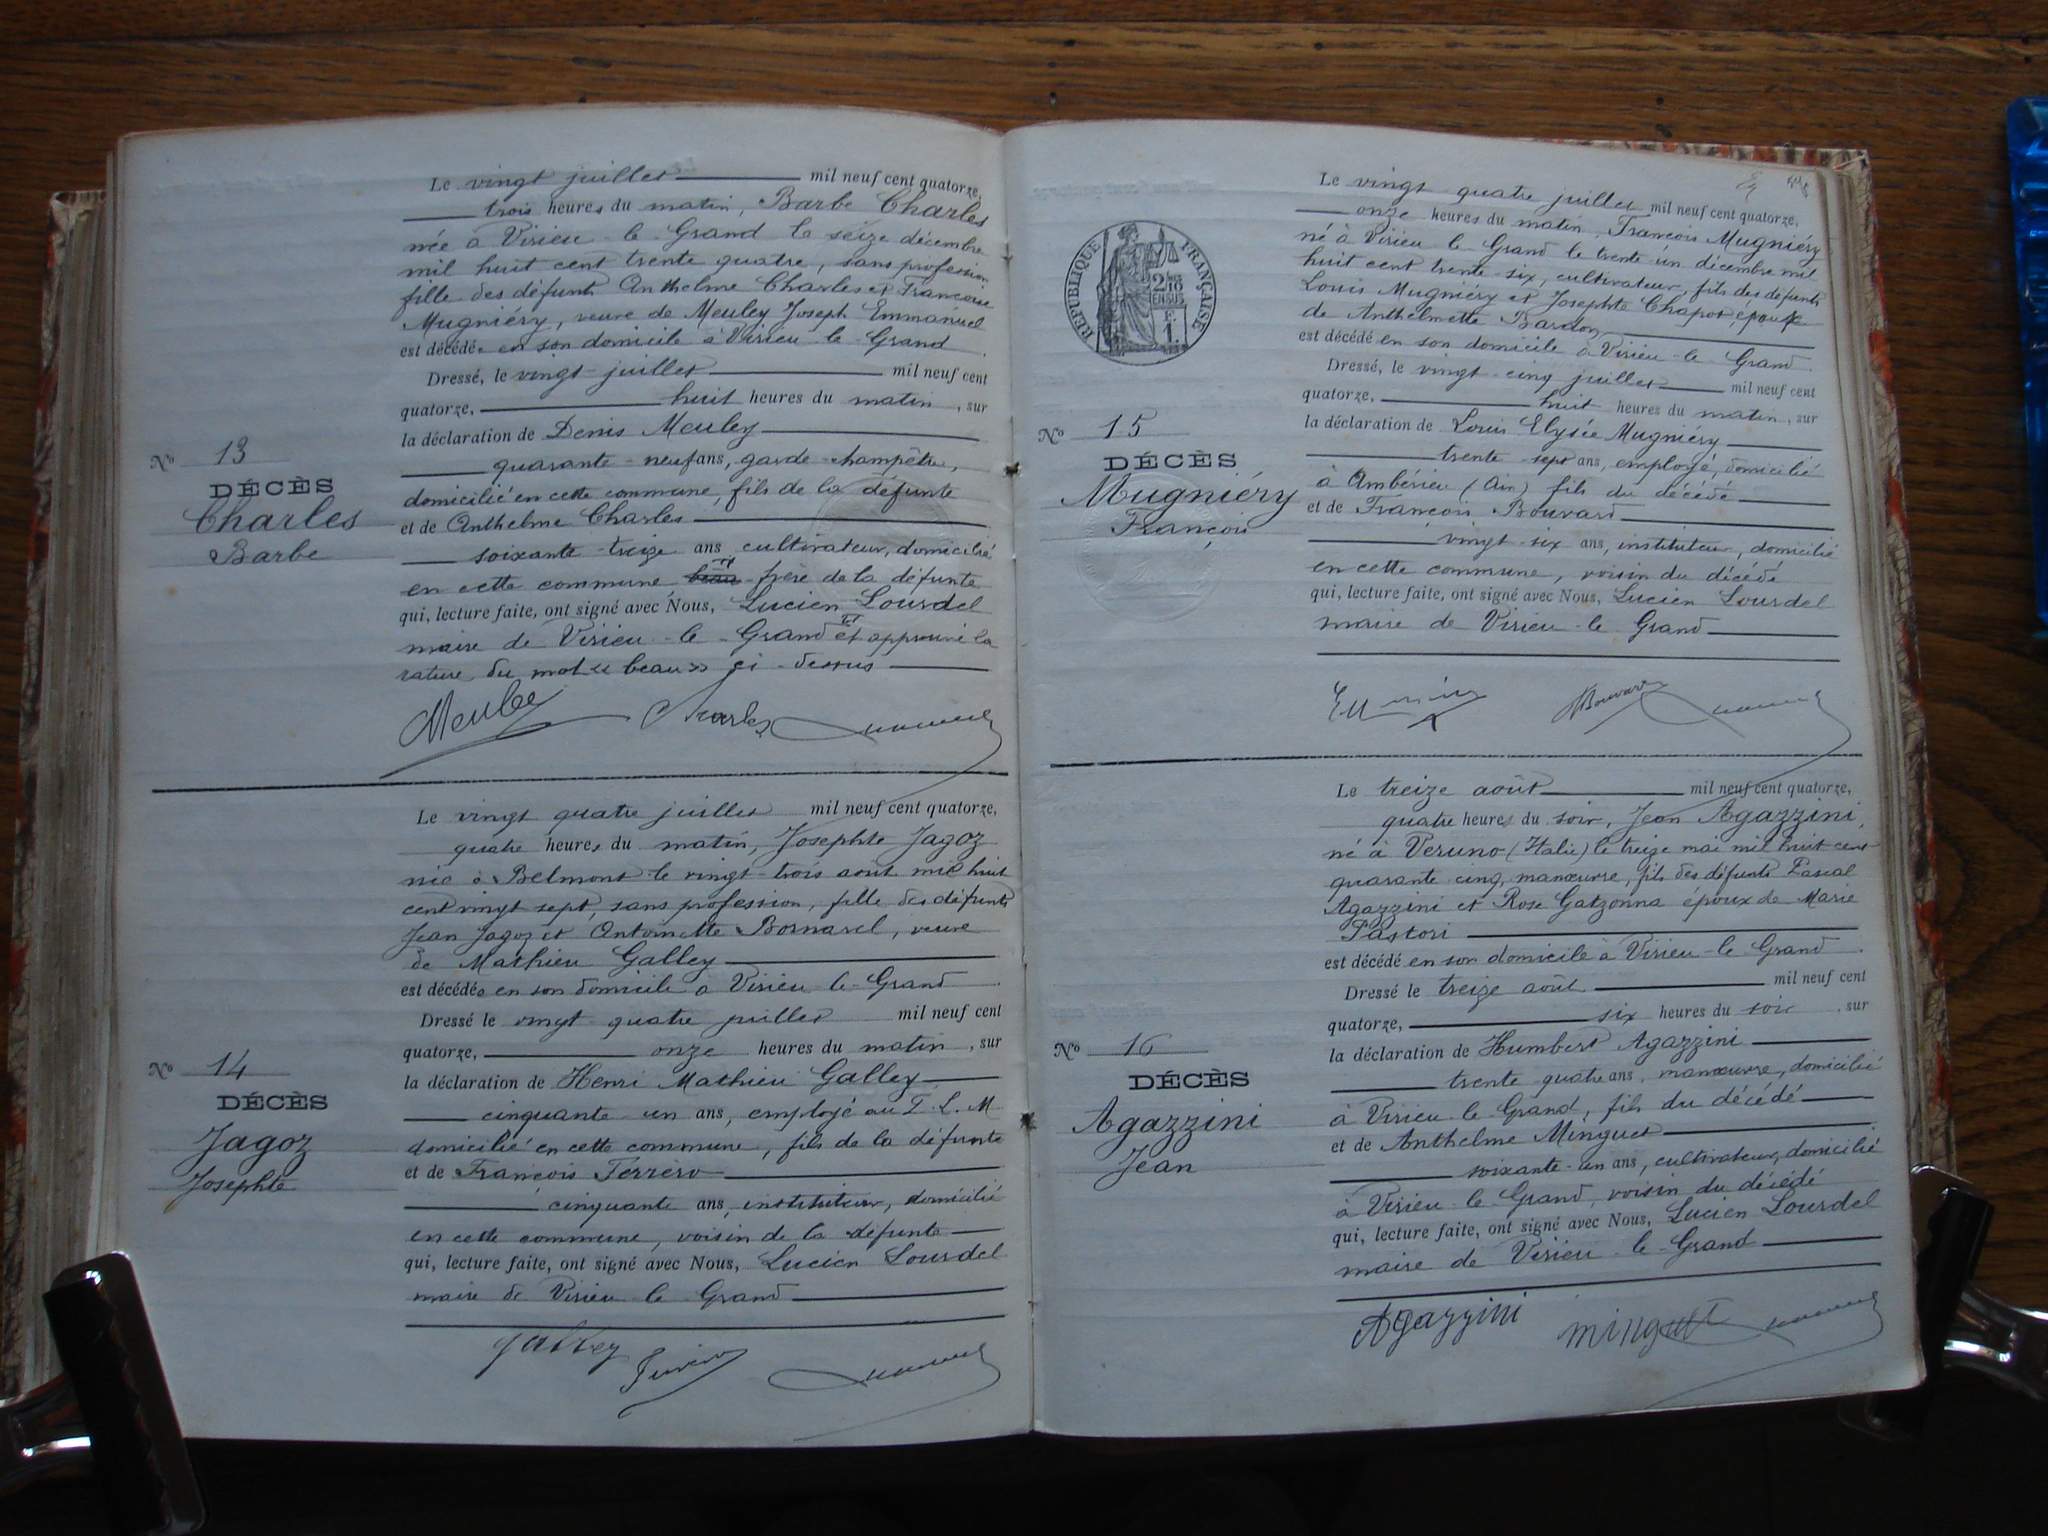 Le vingt juillet mil neuf cent quatorze,
trois heures du matin, Barbe Charles
née à Virieu-le-Grand le seize décembre
mil huit cent trente quatre, sans profession
fille des défunts Anthelme Charles et Françoise
Mugniéry, veuve de Meuley Joseph Emmanuel
est décédée en son domicile à Virieu-le-Grand.
Dressé, le vingt juillet mil neuf cent
quatorze, huit heures du matin, sur
la déclaration de Denis Meuley
quarante-neuf ans, garde-champêtre,
domicilié en cette commune, fils de la défunte
et de Anthelme Charles
soixante-treize ans cultivateur, domicilié
en cette commune beau-frère de la défunte
qui, lecture faite, ont signé avec Nous, Lucien Lourdel
maire de Virieu-le-Grand et approuvé la
rature du mot « beau » ci-dessus
Meuley Charles
No 13
DÉCÈS
Charles
Barbe
Le vingt quatre juillet mil neuf cent quatorze,
quatre heures du matin, Josephte Jagoz
née à Belmont le vingt-trois août mil huit
cent vingt sept, sans profession, fille des défunts
Jean Jagoz et Antoinette Bornarel, veuve
de Mathieu Galley
est décédée en son domicile à Virieu-le-Grand.
Dressé le vingt-quatre juillet mil neuf cent
quatorze, onze heures du matin, sur
la déclaration de Henri Mathieu Galley
cinquante-un ans, employé au P. L. M.
domicilié en cette commune, fils de la défunte
et de François Ferrero
cinquante ans, instituteur, domicilié
en cette commune, voisin de la défunte
qui, lecture faite, ont signé avec Nous, Lucien Lourdel
maire de Virieu-le-Grand
Galley
No 14
DÉCÈS
Jagoz
Josephte
Le vingt-quatre juillet mil neuf cent quatorze,
onze heures du matin, François Mugniéry
né à Virieu le Grand le trente un décembre mil
huit cent trente-six, cultivateur, fils des défunts
Louis Mugniéry et Josephte Chapot, époux
de Anthelmette Bardon
est décédé en son domicile à Virieu-le-Grand.
Dressé, le vingt-cinq juillet mil neuf cent
quatorze, huit heures du matin, sur
la déclaration de Louis Elysée Mugniéry
trente-sept ans, employé, domicilié
à Ambérieu (Ain) fils du décédé
et de François Bouvard
vingt-six ans, instituteur, domicilié
en cette commune, voisin du décédé
qui, lecture faite, ont signé avec Nous, Lucien Lourdel
maire de Virieu-le-Grand
Bouvard
RÉPUBLIQUE FRANÇAISE
2/10
EN SUS
F.
1.
No 15
DÉCÈS
Mugniéry
François
Le treize août mil neuf cent quatorze,
quatre heures du soir, Jean Agazzini,
né à Veruno (Italie) le treize mai mil huit cent
quarante-cinq, manœuvre, fils des défunts Pascal
Agazzini et Rose Gatzonna époux de Marie
Pastori
est décédé en son domicile à Virieu-le-Grand.
Dressé le treize août mil neuf cent
quatorze, six heures du soir, sur
la déclaration de Humbert Agazzini
trente-quatre ans, manœuvre, domicilié
à Virieu-le-Grand, fils du décédé
et de Anthelme Minguet
soixante-un ans, cultivateur, domicilié
à Virieu-le-Grand, voisin du décédé
qui, lecture faite, ont signé avec Nous, Lucien Lourdel
maire de Virieu-le-Grand
Agazzini minguet
No 16
DÉCÈS
Agazzini
Jean